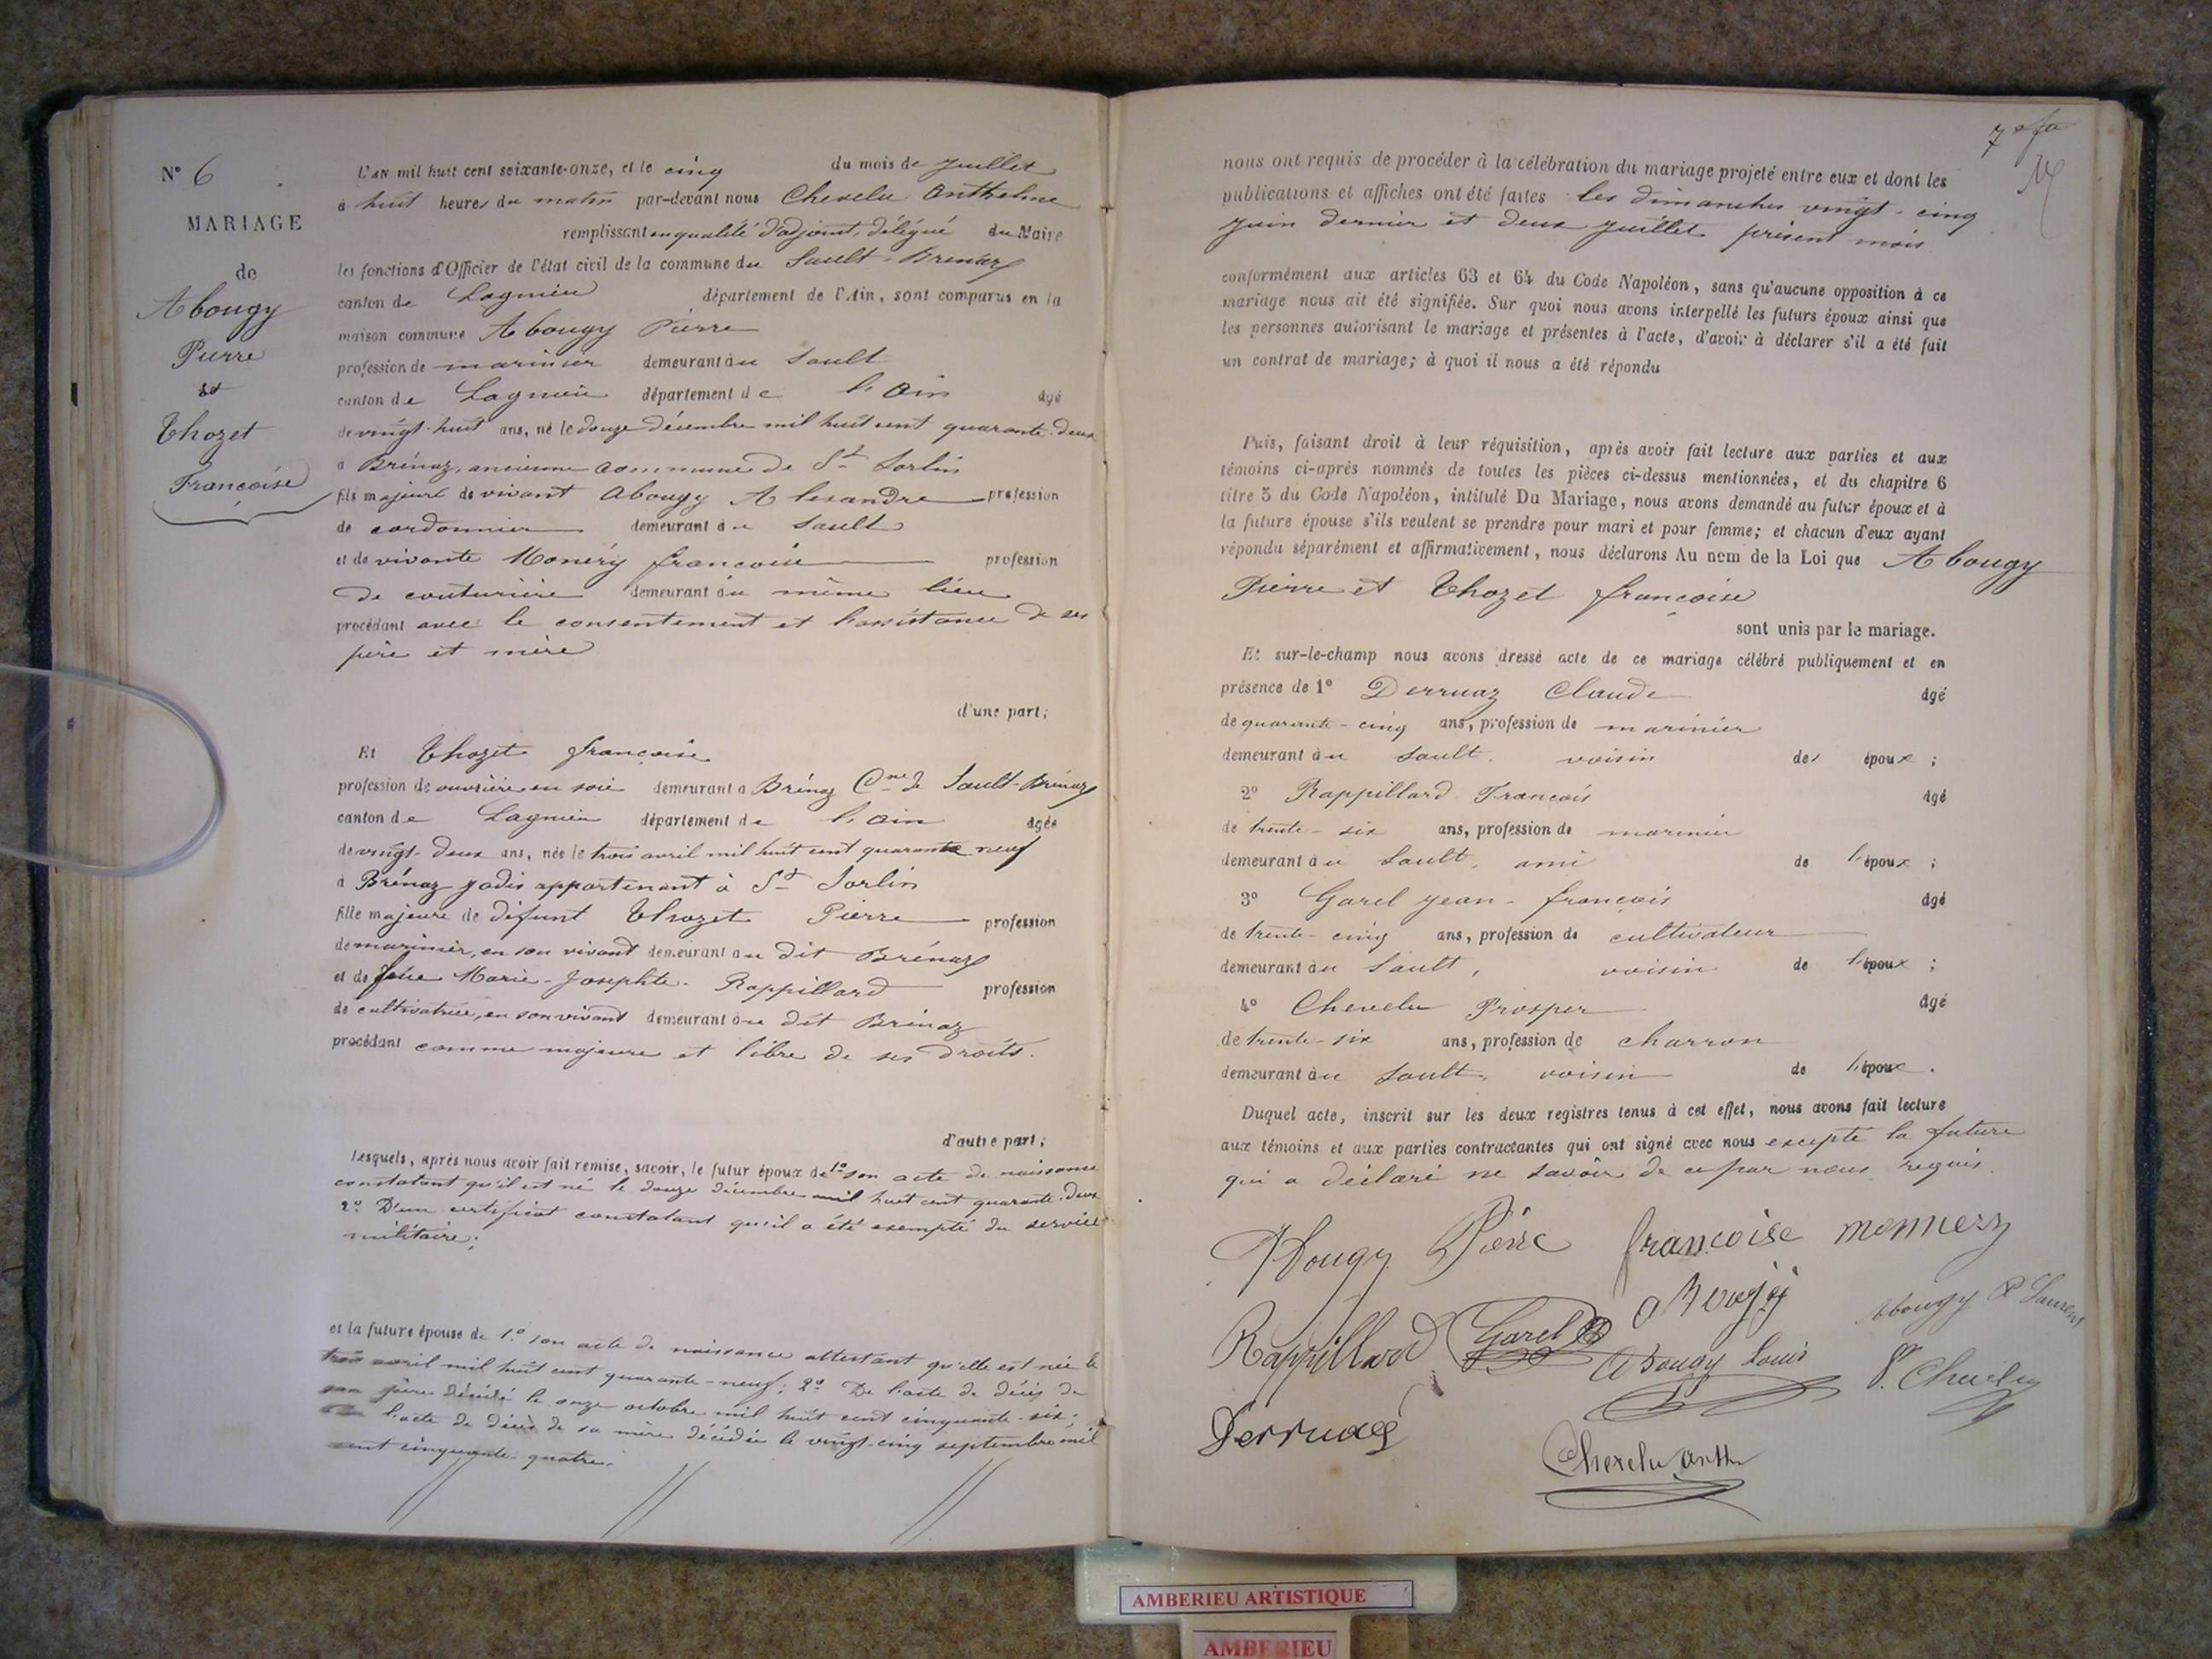 N° 6
MARIAGE
de
Abougy
Pierre
et
Thozet
Françoise
L'AN mil huit cent soixante-onze, et le cinq du mois de juillet
à huit heures du matin par-devant nous Chevelu Anthelme
remplissant en qualité d'adjoint, délégué du Maire
les fonctions d'Officier de l'état civil de la commune du Sault-Brénaz
canton de Lagnieu département de l'Ain, sont comparus en la
maison commune Abougy Pierre
profession de marinier demeurant au Sault
canton de Lagnieu département de l'Ain âgé
de vingt-huit ans, né le douze décembre mil huit cent quarante-deux
à Brénaz, ancienne commune de St Sorlin
fils majeur de vivant Abougy Alexandre profession
de cordonnier demeurant au Sault
et de vivante Monéry françoise profession
de couturière demeurant au même lieu
procédant avec le consentement et l'assistance de ses
père et mère
d'une part;
Et Thozet françoise
profession de ouvrière en soie demeurant à Brénaz Cne de Sault-Brénaz
canton de Lagnieu département de l'ain âgée
de vingt-deux ans, née le trois avril mil huit cent quarante neuf
à Brénaz jadis appartenant à St Sorlin
fille majeure de défunt Thozet Pierre profession
de marinier, en son vivant demeurant au dit Brénaz
et de feue Marie-Josephte Rappillard profession
de cultivatrice, en son vivant demeurant au dit Brénaz
procédant comme majeure et libre de ses droits.
d'autre part;
Lesquels, après nous avoir fait remise, savoir, le futur époux de 1° son acte de naissance
constatant qu'il est né le douze décembre mil huit cent quarante-deux
2° D'un certificat constatant qu'il a été exempté du service
militaire;
et la future épouse de 1° son acte de naissance attestant qu'elle est née le
trois avril mil huit cent quarante-neuf; 2° De l'acte de décès de
son père décédé le onze octobre mil huit cent cinquante-six;
l'acte de décès de sa mère décédée le vingt-cinq septembre mil
cent cinquante-quatre.
7
nous ont requis de procéder à la célébration du mariage projeté entre eux et dont les
publications et affiches ont été faites les dimanches vingt-cinq
juin dernier et deux juillet présent mois
conformément aux articles 63 et 64 du Code Napoléon, sans qu'aucune opposition à ce
mariage nous ait été signifiée. Sur quoi nous avons interpellé les futurs époux ainsi que
les personnes autorisant le mariage et présentes à l'acte, d'avoir à déclarer s'il a été fait
un contrat de mariage; à quoi il nous a été répondu
Puis, faisant droit à leur réquisition, après avoir fait lecture aux parties et aux
témoins ci-après nommés de toutes les pièces ci-dessus mentionnées, et du chapitre 6
titre 5 du Code Napoléon, intitulé Du Mariage, nous avons demandé au futur époux et à
la future épouse s'ils veulent se prendre pour mari et pour femme; et chacun d'eux ayant
répondu séparément et affirmativement, nous déclarons Au nom de la Loi que Abougy
Pierre et Thozet françoise
sont unis par le mariage.
Et sur-le-champ nous avons dressé acte de ce mariage célébré publiquement et en
présence de 1° Derruaz Claude âgé
de quarante-cinq ans, profession de marinier
demeurant au Sault, voisin des époux;
2° Rappillard François âgé
de trente-six ans, profession de marinier
demeurant au Sault, ami de l'époux;
3° Garel jean-françois âgé
de trente-cinq ans, profession de cultivateur
demeurant au Sault, voisin de l'époux;
4° Chevelu Prosper âgé
de trente-six ans, profession de charron
demeurant au Sault, voisin de l'époux.
Duquel acte, inscrit sur les deux registres tenus à cet effet, nous avons fait lecture
aux témoins et aux parties contractantes qui ont signé avec nous excepté la future
qui a déclaré ne savoir de ce par nous requis.
Abougy Pierre françoise monnery
Abougy
Abougy Laurent
Rappillard Garel
Abougy Louis
P. Chevelu
Derruaz
Chevelu anth
AMBERIEU ARTISTIQUE
AMBERIEU